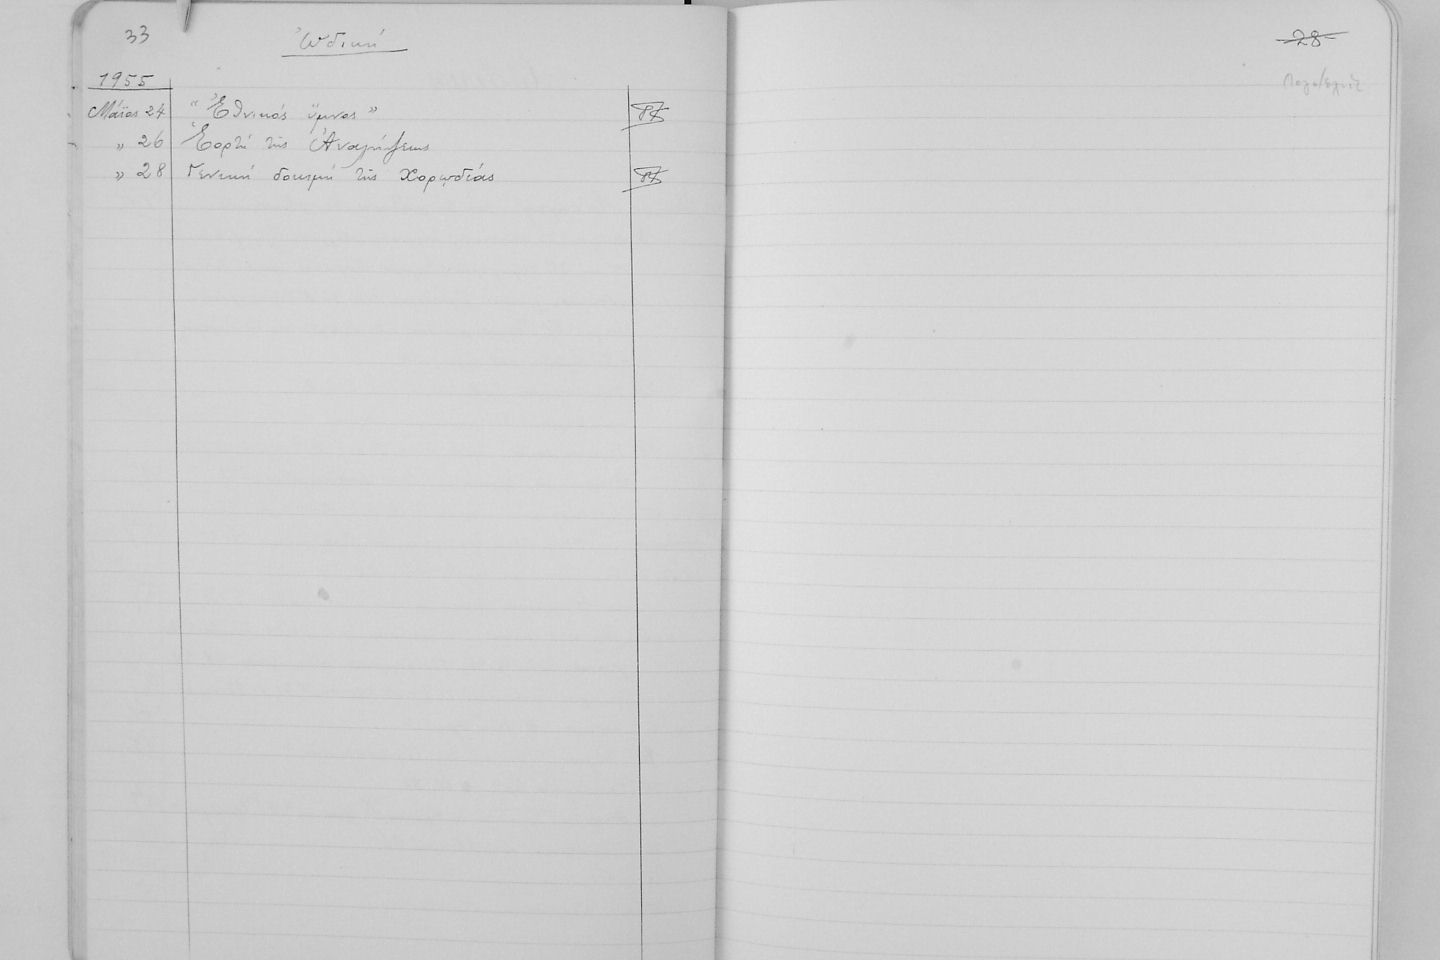 33
Ὠδική
1955
Μάϊος 24 " Ἐθνικός ὕμνος "
" 26 Ἑορτή τῆς Ἀναλήψεως
" 28 Γενική δοκιμή τῆς Χορῳδίας
28